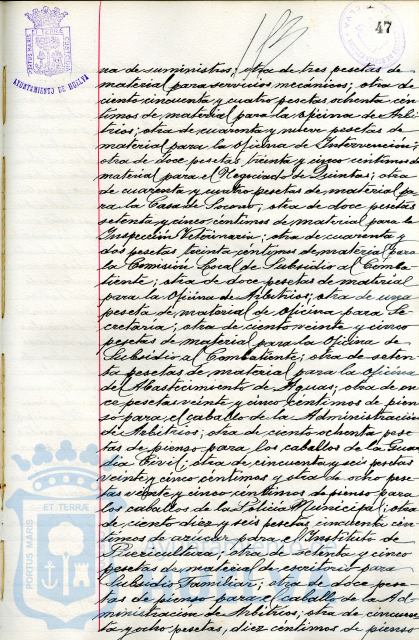 47
PORTUS MARIS ET TERRÆ CUSTODIA
AYUNTAMIENTO DE HUELVA
ra de suministros; otra de tres pesetas de
material para servicios mecánicos; otra de
ciento cincuenta y cuatro pesetas ochenta cen-
timos de material para la oficina de Arbi-
trios; otra de cuarenta y nueve pesetas de
material para la oficina de Intervención;
otra de doce pesetas treinta y cinco centimos de
material para el Negociado de Quintas; otra
de cuarenta y cuatro pesetas de material pa-
ra la Casa de Socorro; otra de doce pesetas
setenta y cinco centimos de material para la
Inspección Veterinaria; otra de cuarenta y
dos pesetas treinta centimos de material para
la Comisión Local de Subsidio al Comba-
tiente; otra de doce pesetas de material
para la Oficina de Arbitrios; otra de una
peseta de material de oficina para Se-
cretaria; otra de ciento veinte y cinco
pesetas de material para la Oficina de
Subsidio al Combatiente; otra de seten-
ta pesetas de material para la oficina
de Abastecimiento de Aguas; otra de on-
ce pesetas veinte y cinco centimos de pien-
so para el caballo de la Administración
de Arbitrios; otra de ciento ochenta pese-
tas de pienso para los caballos de la Guar-
dia Civil; otra de cincuenta y seis pesetas
veinte y cinco centimos y otra de ocho pese-
tas veinte y cinco centimos de pienso para
los caballos de la Policia Municipal; otra
de ciento diez y seis pesetas cincuenta cen-
timos de azucar para el Instituto de
Puericultura; otra de ochenta y cinco
pesetas de material de escritorio para
Subsidio Familiar; otra de doce pese-
tas de pienso para el caballo de la Ad-
ministración de Arbitrios; otra de cincuen-
ta y ocho pesetas, diez centimos de pienso
PORTUS MARIS ET TERRÆ
Ayuntamiento de